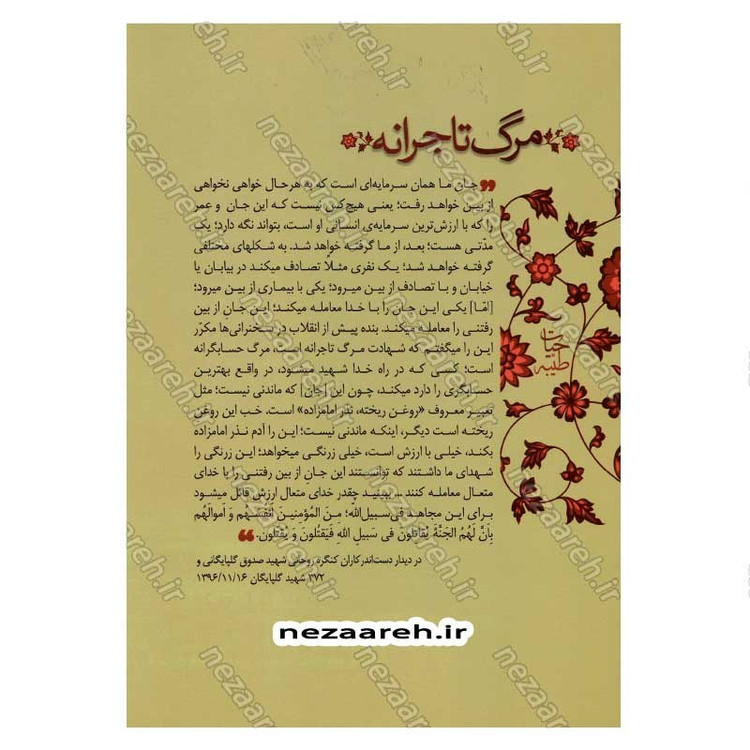 مرگ تاجرانه
جان ما همان سرمایه‌ای است که به هر حال خواهی نخواهی
از بین خواهد رفت؛ یعنی هیچ‌کس نیست که این جان و عمر
را که با ارزش‌ترین سرمایه‌ی انسانی او است، بتواند نگه دارد؛ یک
مدّتی هست؛ بعد، از ما گرفته خواهد شد. به شکلهای مختلفی
گرفته خواهد شد؛ یک نفری مثلاً تصادف میکند در بیابان یا
خیابان و با تصادف از بین میرود؛ یکی با بیماری از بین میرود؛
[امّا] یکی این جان را با خدا معامله میکند؛ این جانِ از بین
رفتنی را معامله میکند. بنده پیش از انقلاب در سخنرانی‌ها مکرّر
این را میگفتم که شهادت مرگ تاجرانه است، مرگ حسابگرانه
است؛ کسی که در راه خدا شهید میشود، در واقع بهترین
حسابگری را دارد میکند، چون این [جان] که ماندنی نیست؛ مثل
تعبیر معروف «روغن ریخته، نذر امامزاده» است. خب این روغن
ریخته است دیگر، اینکه ماندنی نیست؛ این را آدم نذر امامزاده
بکند، خیلی با ارزش است، خیلی زرنگی میخواهد؛ این زرنگی را
شهدای ما داشتند که توانستند این جانِ از بین رفتنی را با خدای
متعال معامله کنند ... ببینید چقدر خدای متعال ارزش قائل میشود
برای این مجاهد فی‌سبیل‌الله؛ مِنَ المُؤمِنینَ اَنفُسَهُم وَ اَموالَهُم
بِاَنَّ لَهُمُ الجَنَّةَ یُقاتِلونَ فی سَبیلِ اللهِ فَیَقتُلونَ وَ یُقتَلون.
در دیدار دست‌اندرکاران کنگره روحانی شهید صدوق گلپایگانی و
۳۷۲ شهید گلپایگان ۱۳۹۶/۱۱/۱۶
حیات
طیبه
nezaareh.ir